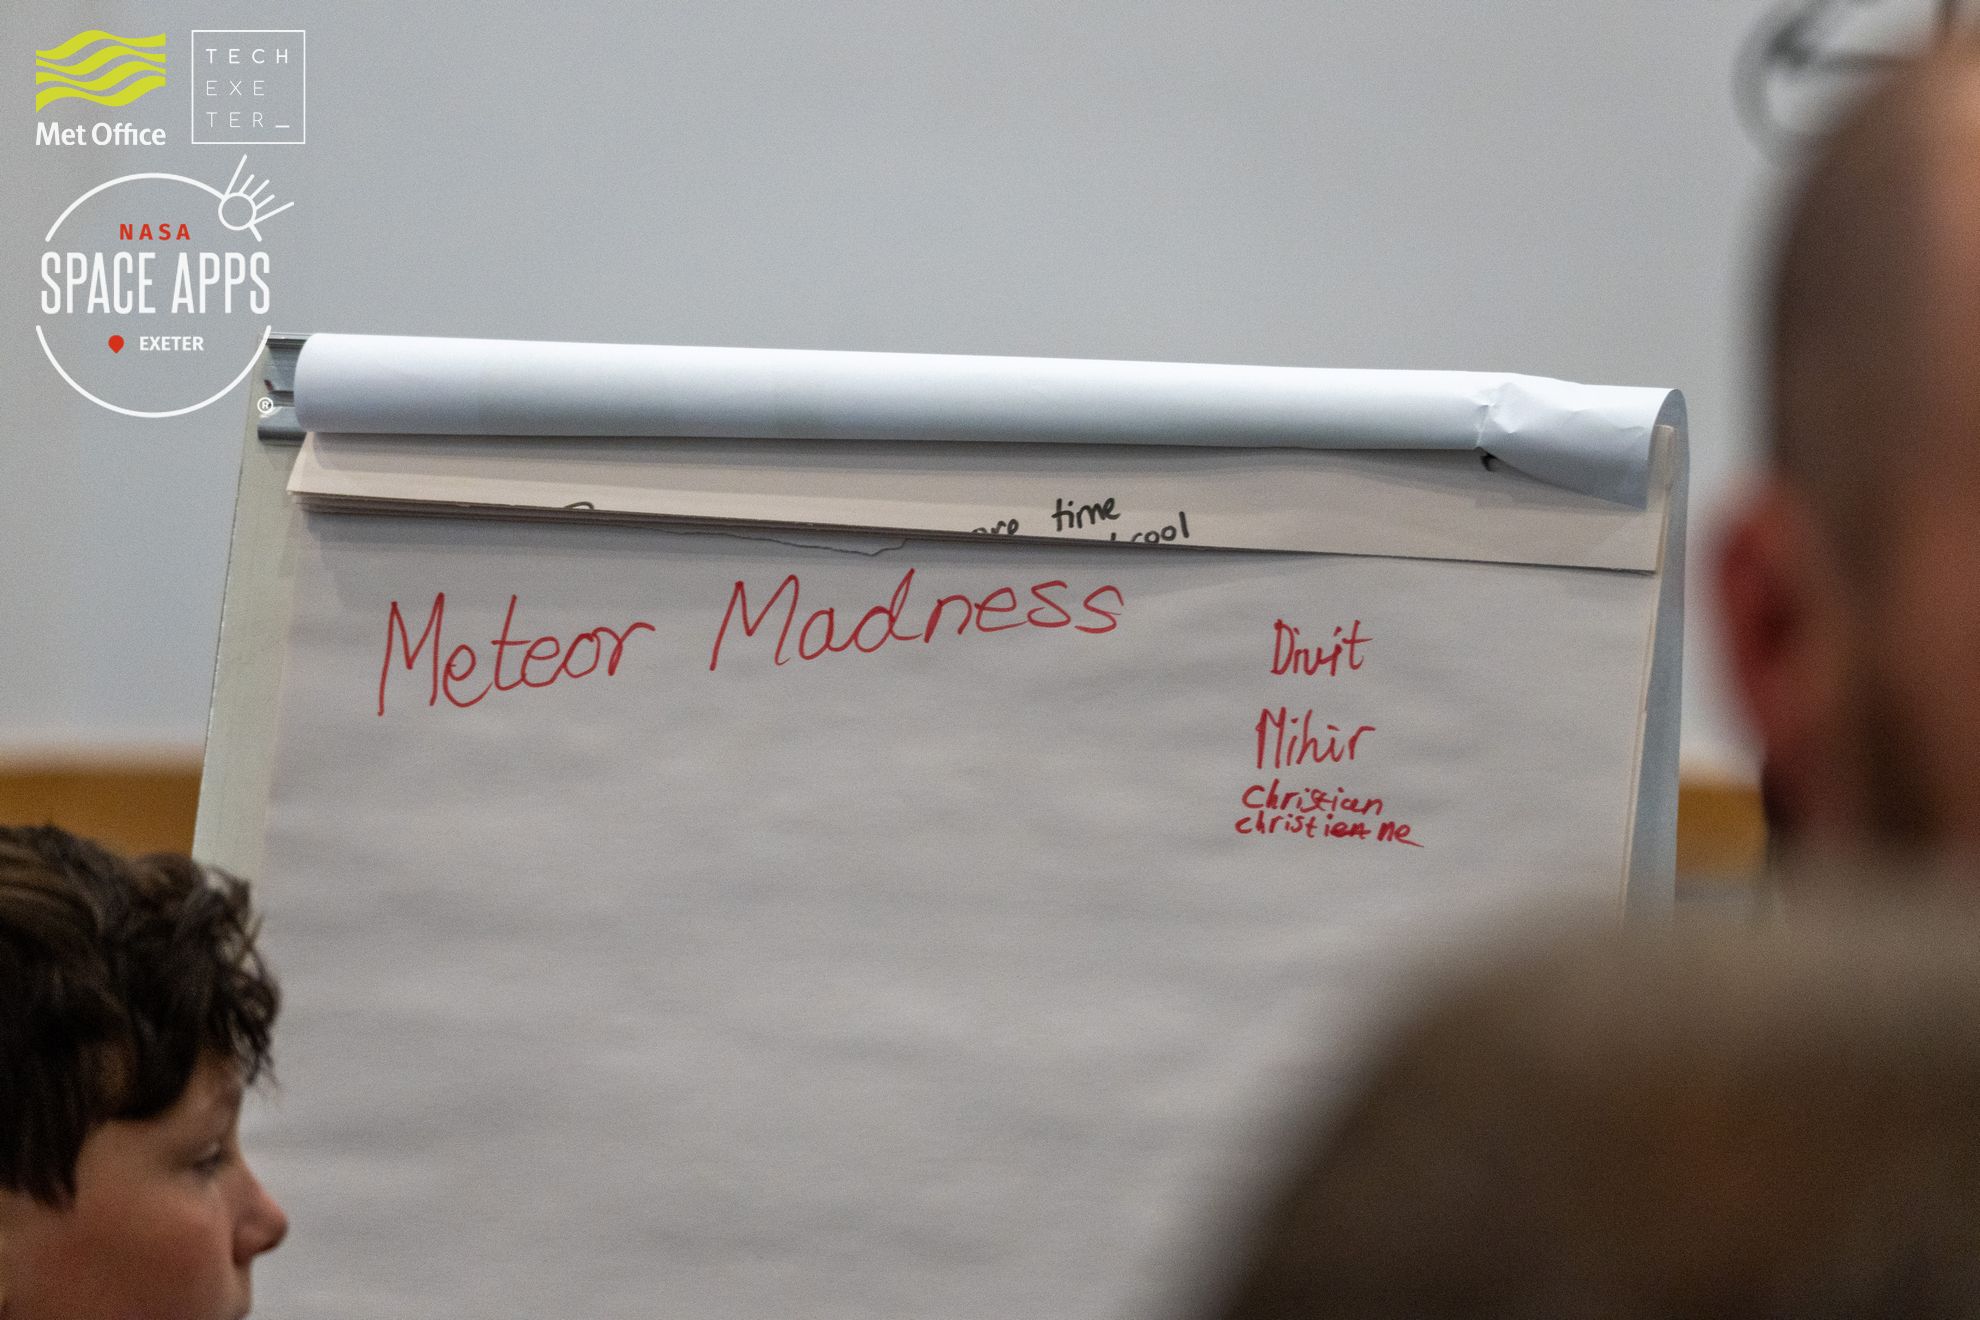 Met Office
TECH
EXE
TER_
NASA
SPACE APPS
EXETER
®
time
cool
Meteor Madness
Divit
Mihir
Christian
christienne